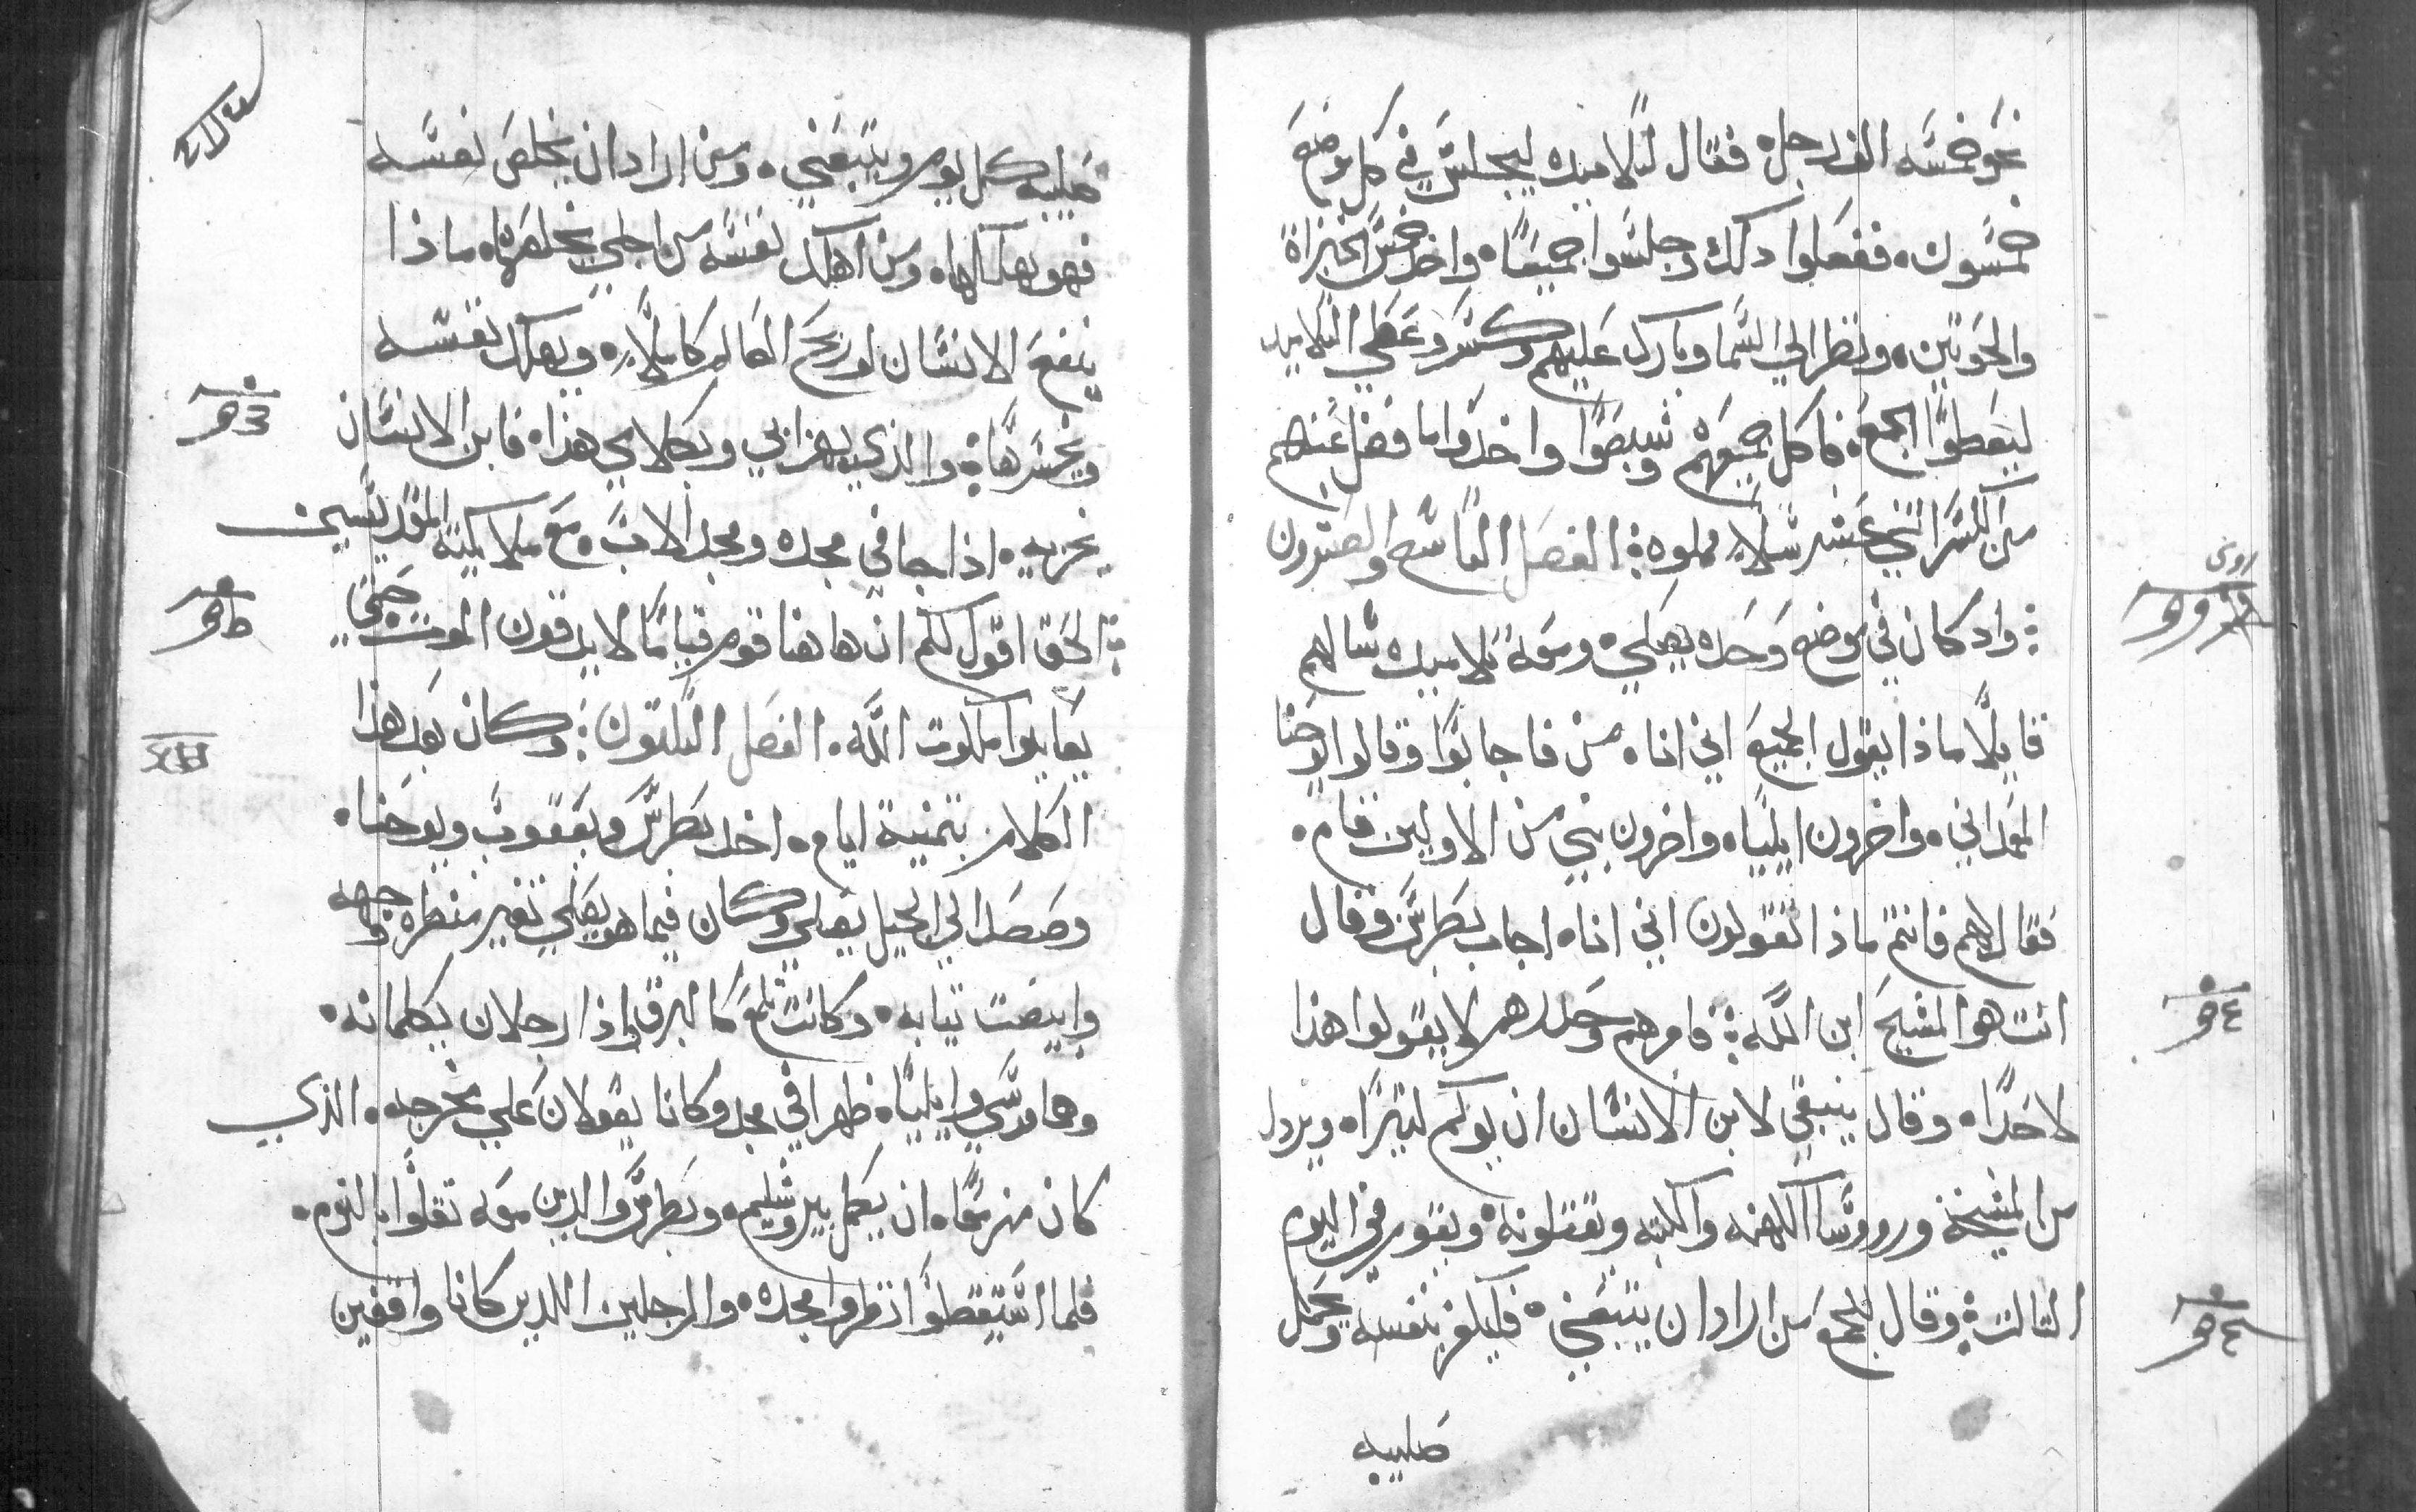 نحو خمسه الف رجل ه فقال لتلاميده ليجلس في كل موضع
خمسون ه ففعلوا دلك وجلسوا جميعا ه واخد خمس الخبزاة
والحوتين ه ونظر الي السما وبارك عليهم وكسر وعطي التلاميد
ليعطوا الجمع ه فاكل جميعهم وشبعوا واخدوا ما فضل عنهم
من الكسر اتني عشر سلا مملوه ⁘ الفصل التاسع والعشرون
⁘ واد كان في موضع وحده يصلي ه ومعه تلاميده سالهم
قايلا ماذا يقول الجميع اني انا ه من فاجابوا وقالوا يوحنا
المعمداني ه واخرون ايليا ه واخرون نبي من الاولين قام ه
فقال لهم فانتم ماذا تقولون اني انا ه اجاب بطرس وقال
انت هو المسيح ابن الله ⁘ فامرهم وحدرهم لا يقولوا هذا
لاحدا ه وقال ينبغي لابن الانسان ان يولم كتيرا ه ويردل
من المشيخة ورووسا الكهنه والكتبه ويقتلونه ه ويقوم في اليوم
التالت ⁘ وقال للجمع من اراد ان يتبعني ه فليكفر بنفسه ويحمل
صليبه
صليبه كل يوم ويتبعني ه ومن اراد ان يخلص نفسه
فهو يهلكها ه ومن اهلك نفسه من اجلي يخلصها ه ماذا
ينفع الانسان لو ربح العالم كاملا ه ويهلك نفسه
ويخسرها ⁘ والذي يخزا بي وبكلامي هذا ه فابن الانسان
يخزيه ه اذا جا في مجده ومجد الاب ه مع ملايكته المقديسين
⁘ الحق اقول لكم ان هاهنا قوم قياما لا يدقون الموت حتي
يعاينوا ملكوت الله ه الفصل التلتون ⁘ وكان بعد هذا
الكلام بتمنية ايام ه اخد بطرس ويعقوب ويوحنا ه
وصعد الي الجبل يصلي وكان فيما هو يصلي تغير منظر وجهه
وابيضت تيابه ه وكانت تلمع كالبرق واذا رجلان يكلمانه ه
وهما موسي وايليا ه ظهرا في مجد وكانا يقولان علي مخرجه ه الذي
كان مزمعا ه ان يكمل بيروشليم ه وبطرس والدين معه تقلوا بالنوم ه
فلما استيقظوا نظروا مجده ه والرجلين اللدين كانا واقفين